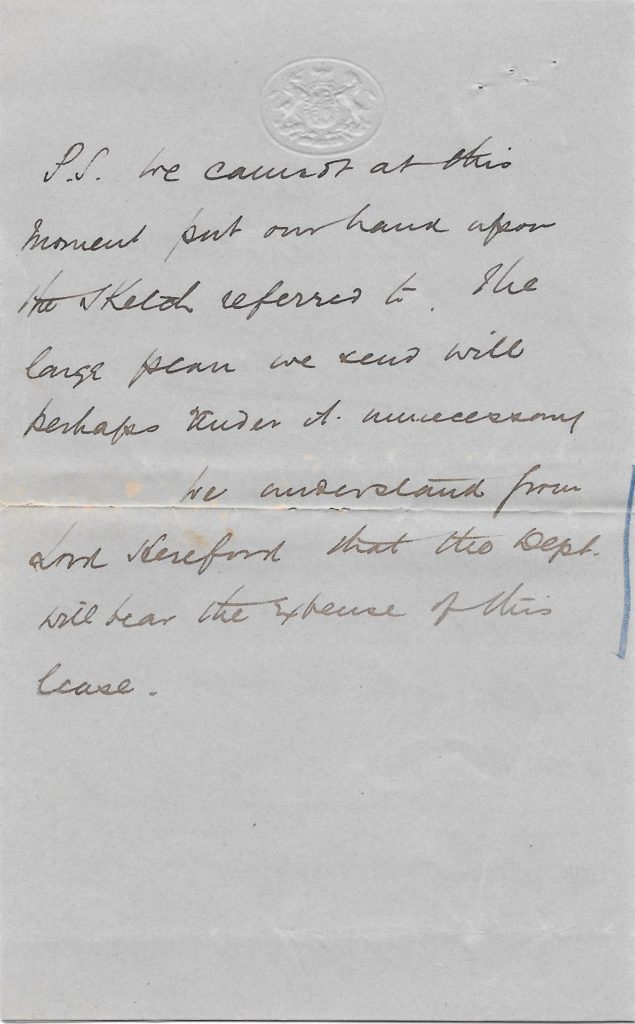 P.S. We cannot at this
moment put our hand upon
the sketch referred to. The
large plan we send will
perhaps render it unnecessary
We understand from
Lord Hereford that the Dept.
will bear the Expense of this
lease.